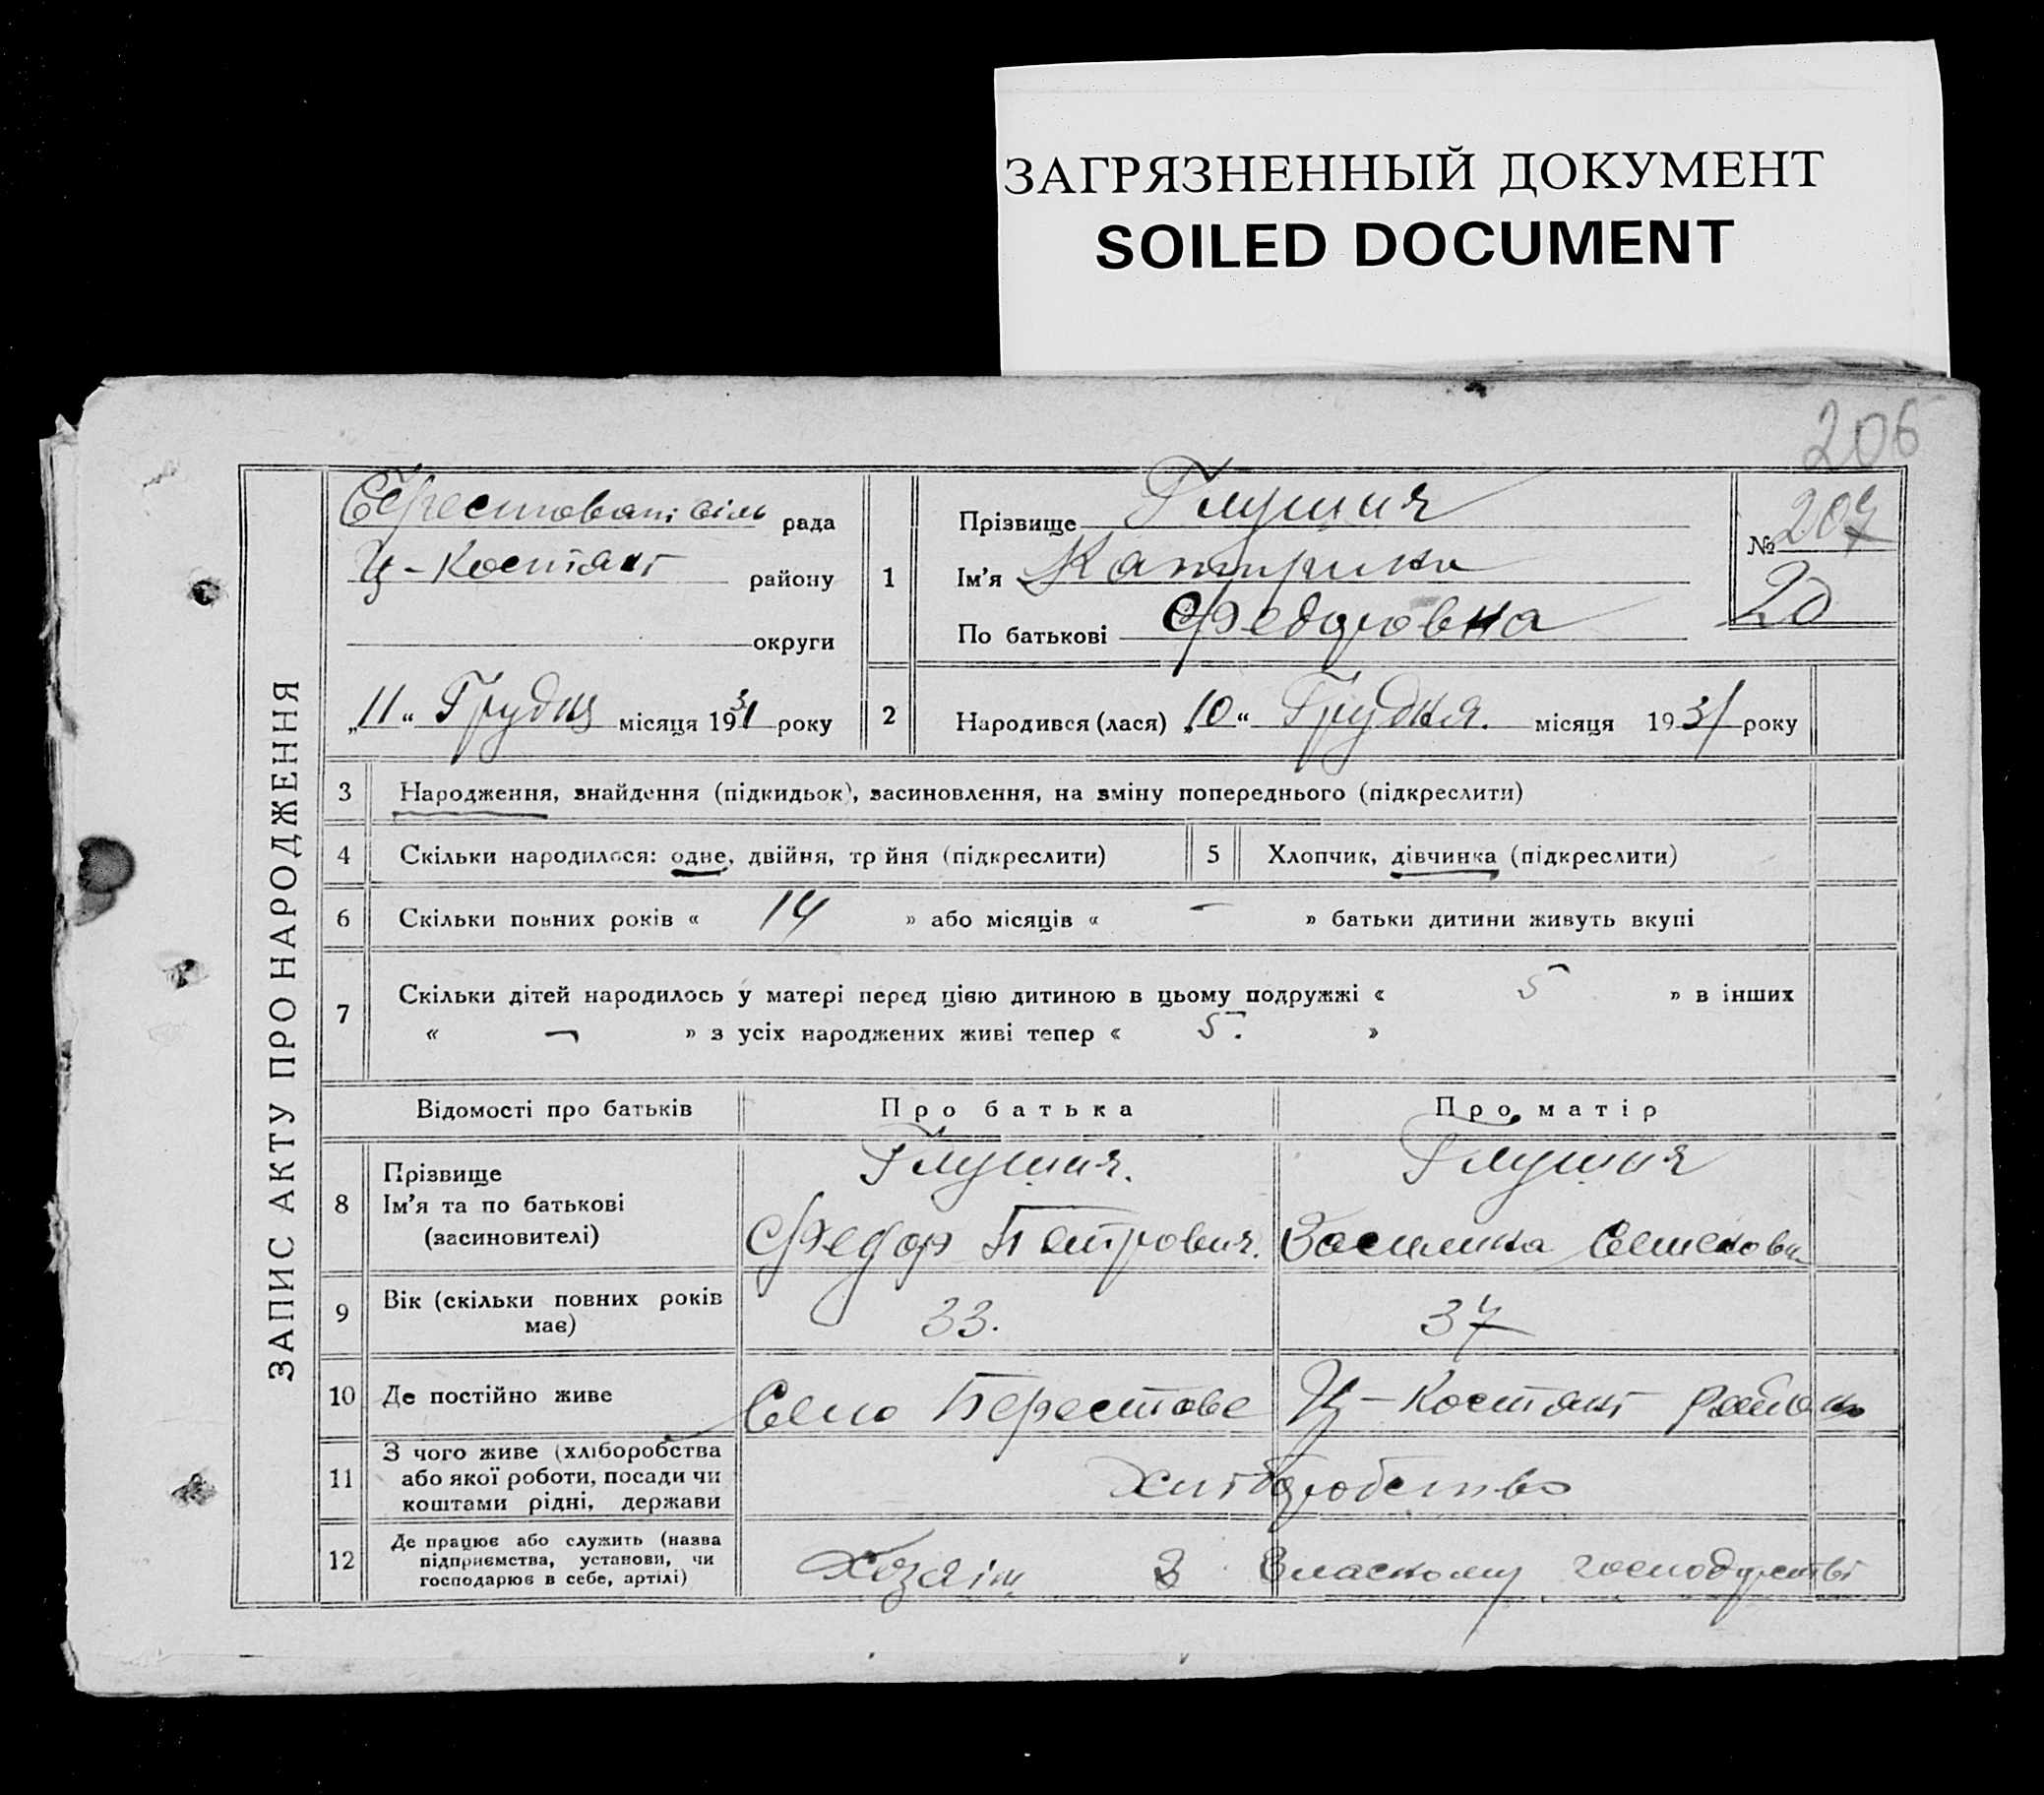 ЗАГРЯЗНЕННЫЙ ДОКУМЕНТ
SOILED DOCUMENT
206
ЗАПИС АКТУ ПРО НАРОДЖЕННЯ
рада
Ц-Костант району
округи
„11“ Грудня місяця 1931 року
1
Прізвище
Ім'я Катирина
По батькові Федоровна
№ 207
20
2 Народився (лася) „10“ Грудня. місяця 1931 року
3 Народження, знайдення (підкидьок), засиновлення, на зміну попереднього (підкреслити)
4 Скільки народилося: одне, двійня, тр йня (підкреслити) 5 Хлопчик, дівчинка (підкреслити)
6 Скільки повних років « 14 » або місяців « - » батьки дитини живуть вкупі
7 Скільки дітей народилось у матері перед цією дитиною в цьому подружжі « 5 » в інших
« - » з усіх народжених живі тепер « 5. »
Відомості про батьків Про батька Про матір
8 Прізвище
Ім'я та по батькові Федор Петрович. Василина
(засиновителі)
9 Вік (скільки повних років має) 33. 37
10 Де постійно живе Село Берестове Ц-Костант район
11 З чого живе (хліборобства
або якої роботи, посади чи
коштами рідні, держави
12 Де працює або служить (назва
підприємства, установи, чи
господарює в себе, артілі)